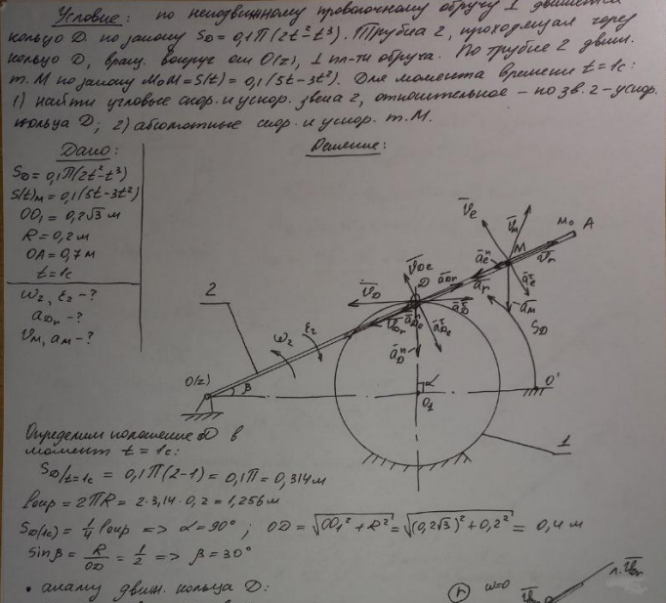 Условие: по неподвижному проволочному обручу 1 движется
кольцо D. по закону S_D = 0,1π(2t²-t³). Трубка 2, проходящая через
кольцо D, вращ. вокруг оси O(z), ⊥ пл-ти обруча. По трубке 2 движ.
т. M по закону M₀M = S(t) = 0,1(5t-3t²). Для момента времени t = 1с:
1) найти угловые скор. и ускор. звена 2, относительное - по зв. 2 - ускор.
кольца D; 2) абсолютные скор. и ускор. т. M.
Дано:
Решение:
S_D = 0,1π(2t²-t³)
S(t)_M = 0,1(5t-3t²)
OO₁ = 0,2√3 м
R = 0,2 м
OA = 0,7 м
t = 1c
ω₂, ε₂ - ?
a_Dr - ?
v_M, a_M - ?
V̄e
V̄м
M₀ A
M
V̄r
V̄De
D
V̄D
āDr
ār
āM
SD
2
ω₂
ε₂
O(z)
β
α
O₁
O'
1
Определим положение D в
момент t = 1c:
S_D/t=1c = 0,1π(2-1) = 0,1π = 0,314 м
lокр = 2πR = 2·3,14·0,2 = 1,256 м
S_D(1c) = 1/4 lокр => α = 90° ; OD = √(OO₁² + R²) = √((0,2√3)² + 0,2²) = 0,4 м
sinβ = R/OD = 1/2 => β = 30°
• анализ движ. кольца D:
ω=0